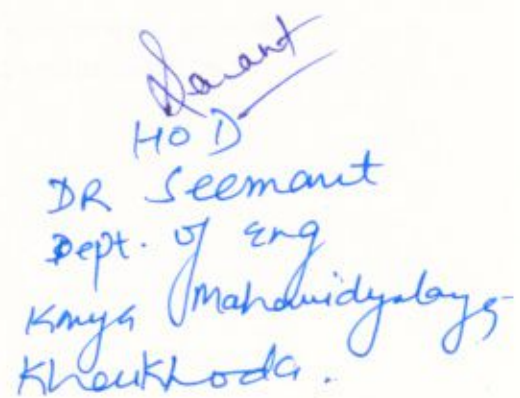 HOD
DR Seemant
Dept. of Eng
Kanya Mahavidyalaya
Kharkhoda.